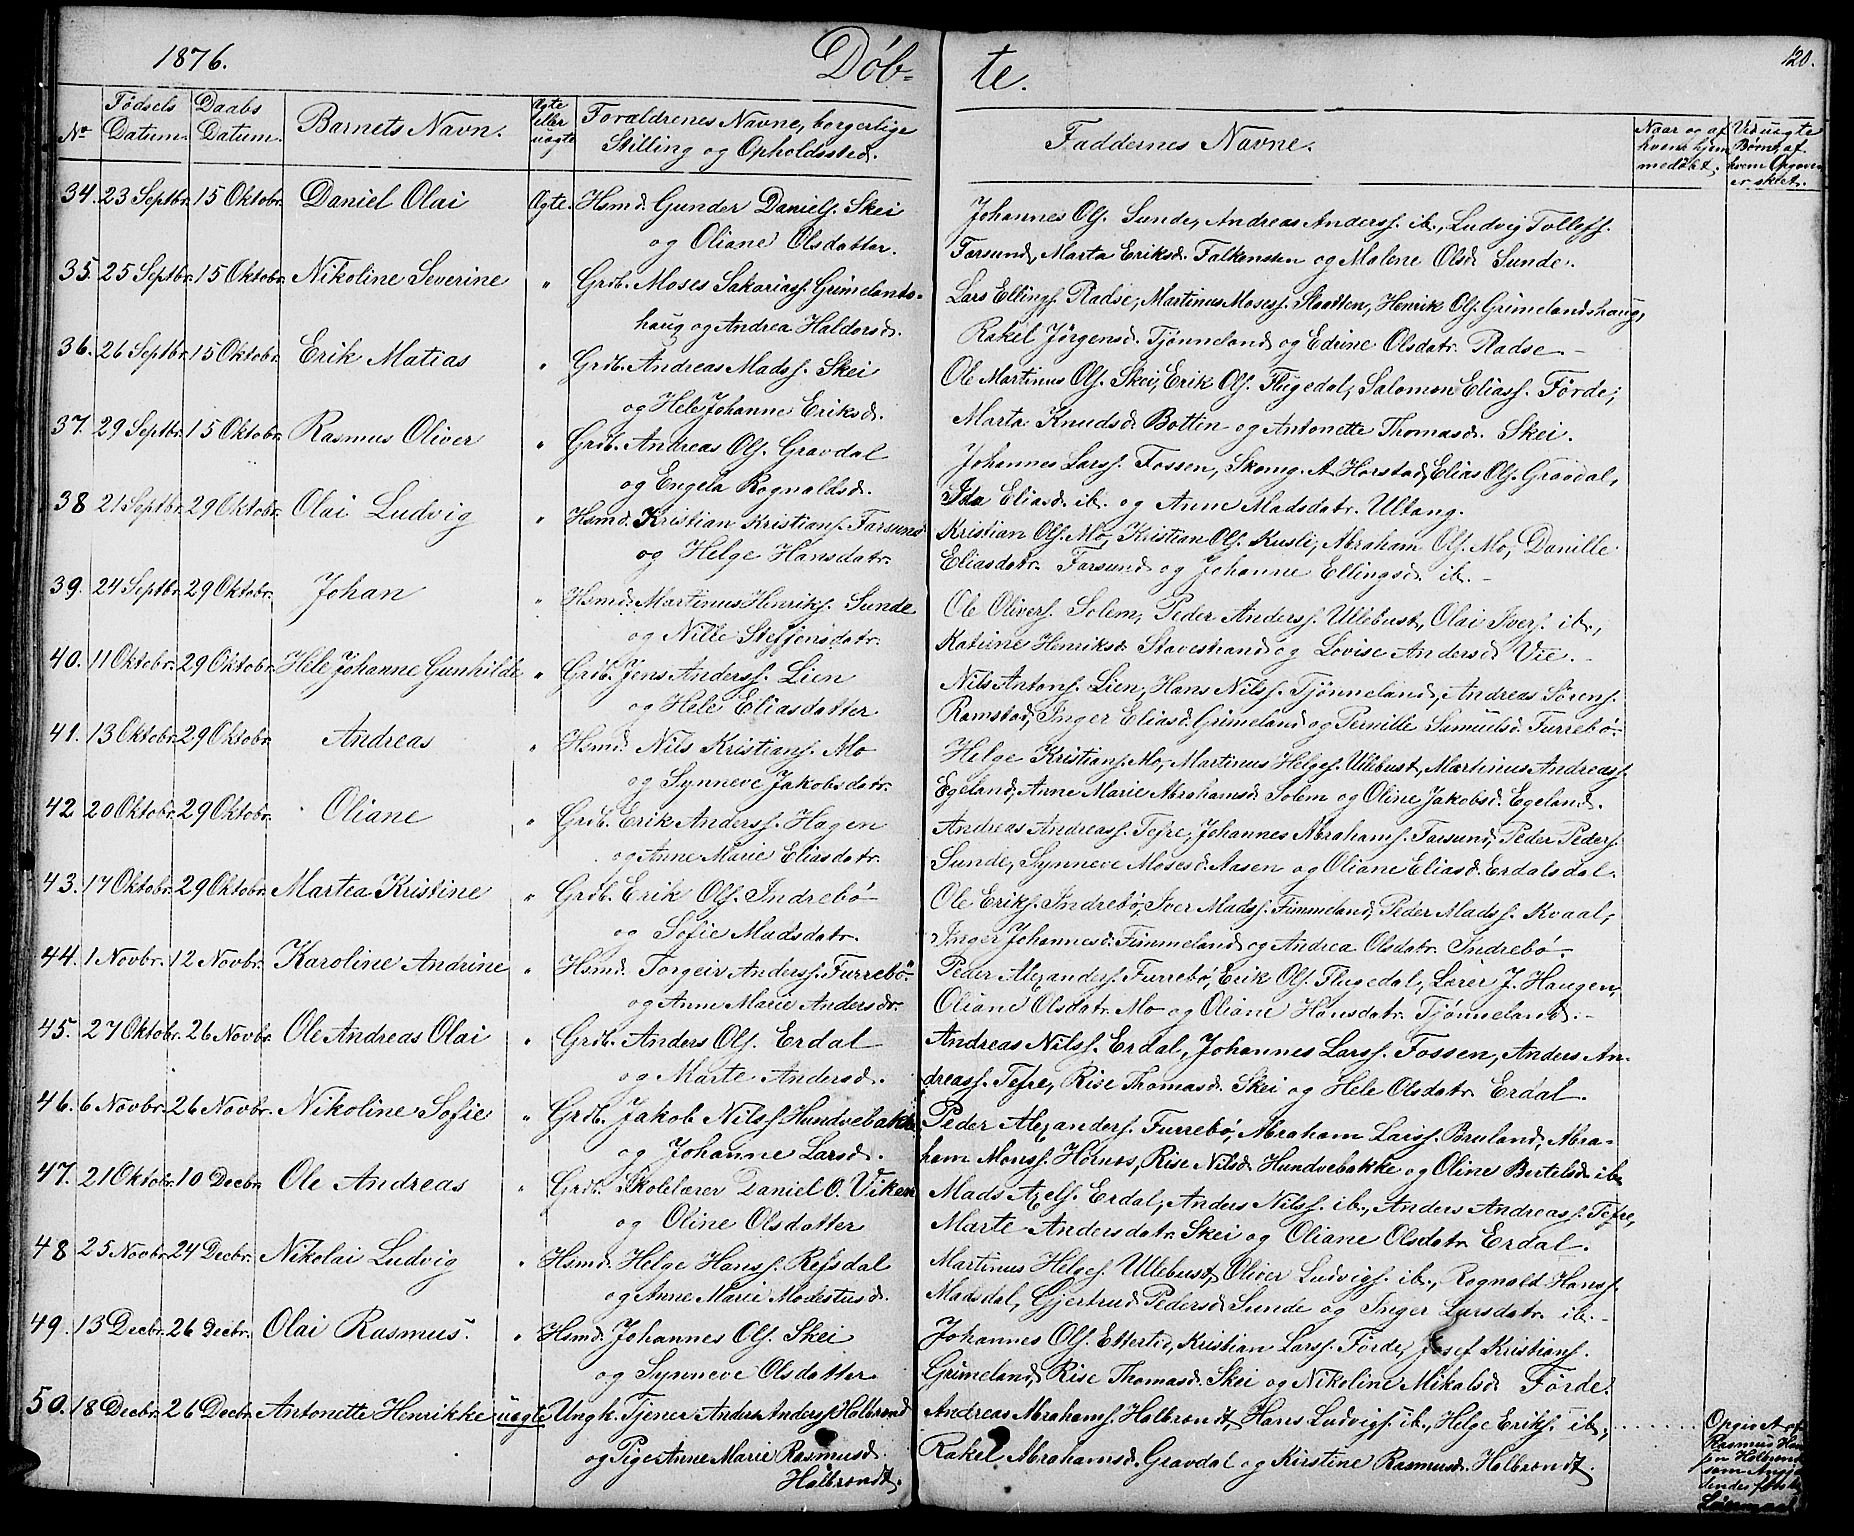 1876.
Döb-
te.
120.
No
Fødsels Datum.
Daabs Datum.
Barnets Navn.
Ægte eller uægte
Forældrenes Navne, borgerlige Stilling og Opholdssted.
Faddernes Navne.
Naar og af hvem hjemmedøbt.
Ved uægte Børn, af hvem Opgaven er skeet.
34. 23 Septbr. 15 Oktobr. Daniel Olai Ægte. Hsmd. Gunder Daniels. Skei
og Oliane Olsdatter.
Johannes Ols. Sunde, Andreas Anderss. ib., Ludvig Tollefs.
Farsund, Marta Eriksd. Falkensten og Malene Olsd. Sunde.
35. 25 Septbr. 15 Oktobr. Nikoline Severine " Grdb. Moses Sakariass. Grimelands-
haug og Andrea Haldorsd.
Lars Ellings. Radse, Martinus Moses. Skadten, Henrik Ols. Grimelandshaug,
Rakel Jörgensd. Tjønneland og Edrine Olsdatr. Radse.-
36. 26 Septbr. 15 Oktobr. Erik Matias " Grdb. Andreas Mads. Skei
og Hele Johanne Eriksd.
Ole Martinus Ols. Skei, Erik Ols. Flugedal, Salomon Eliass. Förde,
Marta Knudsd. Botten og Antonette Thomasd. Skei.
37. 29 Septbr. 15 Oktobr. Rasmus Oliver " Grdb. Andreas Ols. Gravdal
og Engela Rognaldsd.
Johannes Larss. Fossen, Skomg. A. Horstad, Elias Ols. Gravdal,
Ida Eliasd. ib. og Anne Madsdatr. Ullang.
38 21 Septbr. 29 Oktobr. Olai Ludvig " Hsmd. Kristian Kristians. Farsund
og Helge Hansdatr.
Kristian Ols. Mo, Kristian Ols. Kusli, Abraham Ols. Mo, Danille
Eliasdatr. Farsund og Johanne Ellingsd. ib.-
39. 24 Septbr. 29 Oktobr. Johan " Hsmd. Martinus Henriks. Sunde
og Nille Steffensdatr.
Ole Olivers. Solem, Peder Anderss. Ullebust, Olai Ivers. ib.,
Katrine Henriksd. Stavestrand og Lovise Andersd. Vie.-
40. 11 Oktobr. 29 Oktobr. Hele Johanne Gunhilde " Grdb. Jens Anderss. Lien
og Hele Eliasdatter
Nils Antons. Lien, Hans Nilss. Tjønneland, Andreas Sørens.
Ramstad, Inger Eliasd. Grimeland og Pernille Samuelsd. Furrebø.
41. 13 Oktobr. 29 Oktobr. Andreas " Hsmd. Nils Kristians. Mo
og Synneve Jakobsdatr.
Helge Kristians. Mo, Martinus Helges. Ullebust, Martinus Andreass.
Egeland, Anne Marie Abrahamsd. Solem og Oline Jakobsd. Egeland.
42 20 Oktobr. 29 Oktobr. Oliane " Grdb. Erik Anderss. Hagen
og Anne Marie Eliasdatr.
Andreas Andreass. Tefre, Johannes Abrahams. Farsund, Peder Peders.
Sunde, Synneve Mosesd. Aasen og Oliane Eliasd. Erdalsdal.
43. 17 Oktobr. 29 Oktobr. Martea Kristine " Grdb. Erik Ols. Indrebö
og Sofie Madsdatr.
Ole Eriks. Indrebö, Iver Madss. Fimmeland, Peder Madss. Kvaal,
Inger Johannesd. Fimmeland og Andrea Olsdatr. Indrebö.
44. 1 Novbr. 12 Novbr. Karoline Andrine " Hsmd. Torgeir Anderss. Furrebö
og Anne Marie Andersdr.
Peder Alexanders. Furrebö, Erik Ols. Flugedal, Lærer J. Haugen,
Oliane Olsdatr. Mo og Oliane Hansdatr. Tjønneland.-
45. 27 Oktobr. 26 Novbr. Ole Andreas Olai " Grdb. Anders Ols. Erdal
og Marte Andersd.
Andreas Nilss. Erdal, Johannes Larss. Fossen, Anders An-
dreass. Tefre, Rise Thomasd. Skei og Hele Olsdatr. Erdal.
46. 6 Novbr. 26 Novbr. Nikoline Sofie " Grdb. Jakob Nilss. Hundvebakke
og Johanne Larsd.
Peder Alexanders. Furrebö, Abraham Larss. Bruland, Abra-
ham Monss. Hornes, Rise Nilsd. Hundvebakke og Oline Bertelsd. ib.
47. 21 Oktobr. 10 Decbr. Ole Andreas " Grdb. Skolelærer Daniel O. Viken
og Oline Olsdatter
Mads Axels. Erdal, Anders Nilss. ib., Anders Andreass. Tefre,
Marte Andersdatr. Skei og Oliane Olsdatr. Erdal.
48 25 Novbr. 24 Decbr. Nikolai Ludvig " Hsmd. Helge Hanss. Refsdal
og Anne Marie Modestusd.
Martinus Helges. Ullebust, Oliver Ludvigs. ib., Rognald Hanss.
Madsdal, Gjertrud Pedersd. Sunde og Inger Larsdatr. ib.-
49. 13 Decbr. 26 Decbr. Olai Rasmus. " Hsmd. Johannes Ols. Skei
og Synneve Olsdatter
Johannes Ols. Ettertid, Kristian Larss. Förde, Josef Kristians.
Grimeland, Rise Thomasd. Skei og Nikoline Mikalsd. Förde.
50. 18 Decbr. 26 Decbr. Antonette Henrikke uægte Ungk. Tjener Anders Anderss. Halbrendt
og Pige Anne Marie Rasmusd.
Halbrendt.
Andreas Abrahams. Halbrendt, Hans Ludvigs. ib., Helge Eriks. ib.,
Rakel Abrahamsd. Gravdal og Kirstine Rasmusd. Halbrendt.
Opgivet af
Rasmus Han-
sen Halbrendt
som